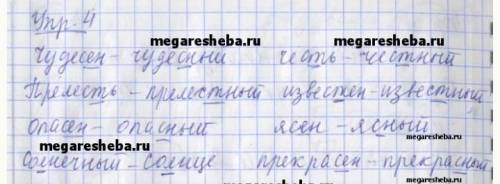 Упр. 4
megaresheba.ru megaresheba.ru
Чудесен - чудесный честь - честный
Прелесть - прелестный известен - известный
Опасен - опасный ясен - ясный
megaresheba.ru megaresheba.ru
Солнечный - солнце прекрасен - прекрасный
megaresheba.ru